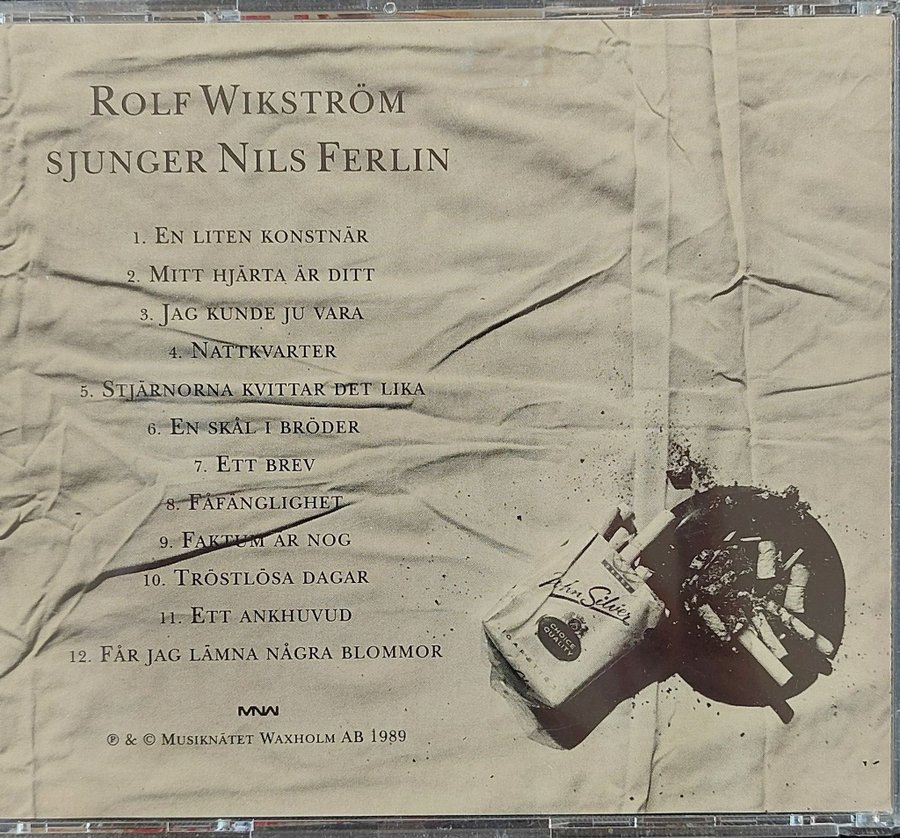 Rolf Wikström
sjunger Nils Ferlin
1. En liten konstnär
2. Mitt hjärta är ditt
3. Jag kunde ju vara
4. Nattkvarter
5. Stjärnorna kvittar det lika
6. En skål i bröder
7. Ett brev
8. Fåfänglighet
9. Faktum är nog
10. Tröstlösa dagar
11. Ett ankhuvud
12. Får jag lämna några blommor
John Silver
CHOICE
QUALITY
MNW
℗ & © Musiknätet Waxholm AB 1989